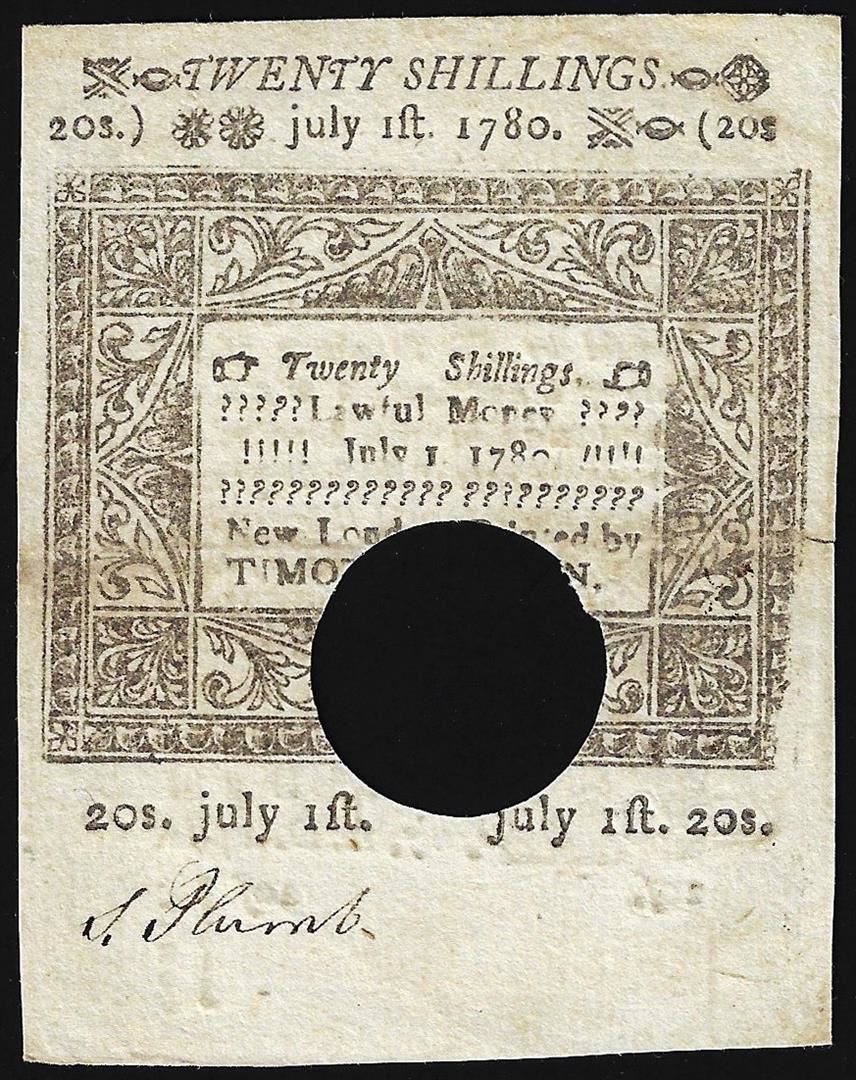 TWENTY SHILLINGS.
20s.) july 1ſt. 1780. (20s
Twenty Shillings.
?????Lawful Money ????
!!!!! July 1. 1780. !!!!!
????????????? ??????????
New Lond Printed by
TIMO N.
20s. july 1ſt. july 1ſt. 20s.
S. Plumb